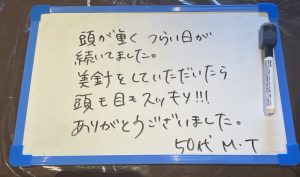 頭が重く つらい日が
続いてました。
美針をしていただいたら
頭も目もスッキリ!!!
ありがとうございました。
50代 M・T